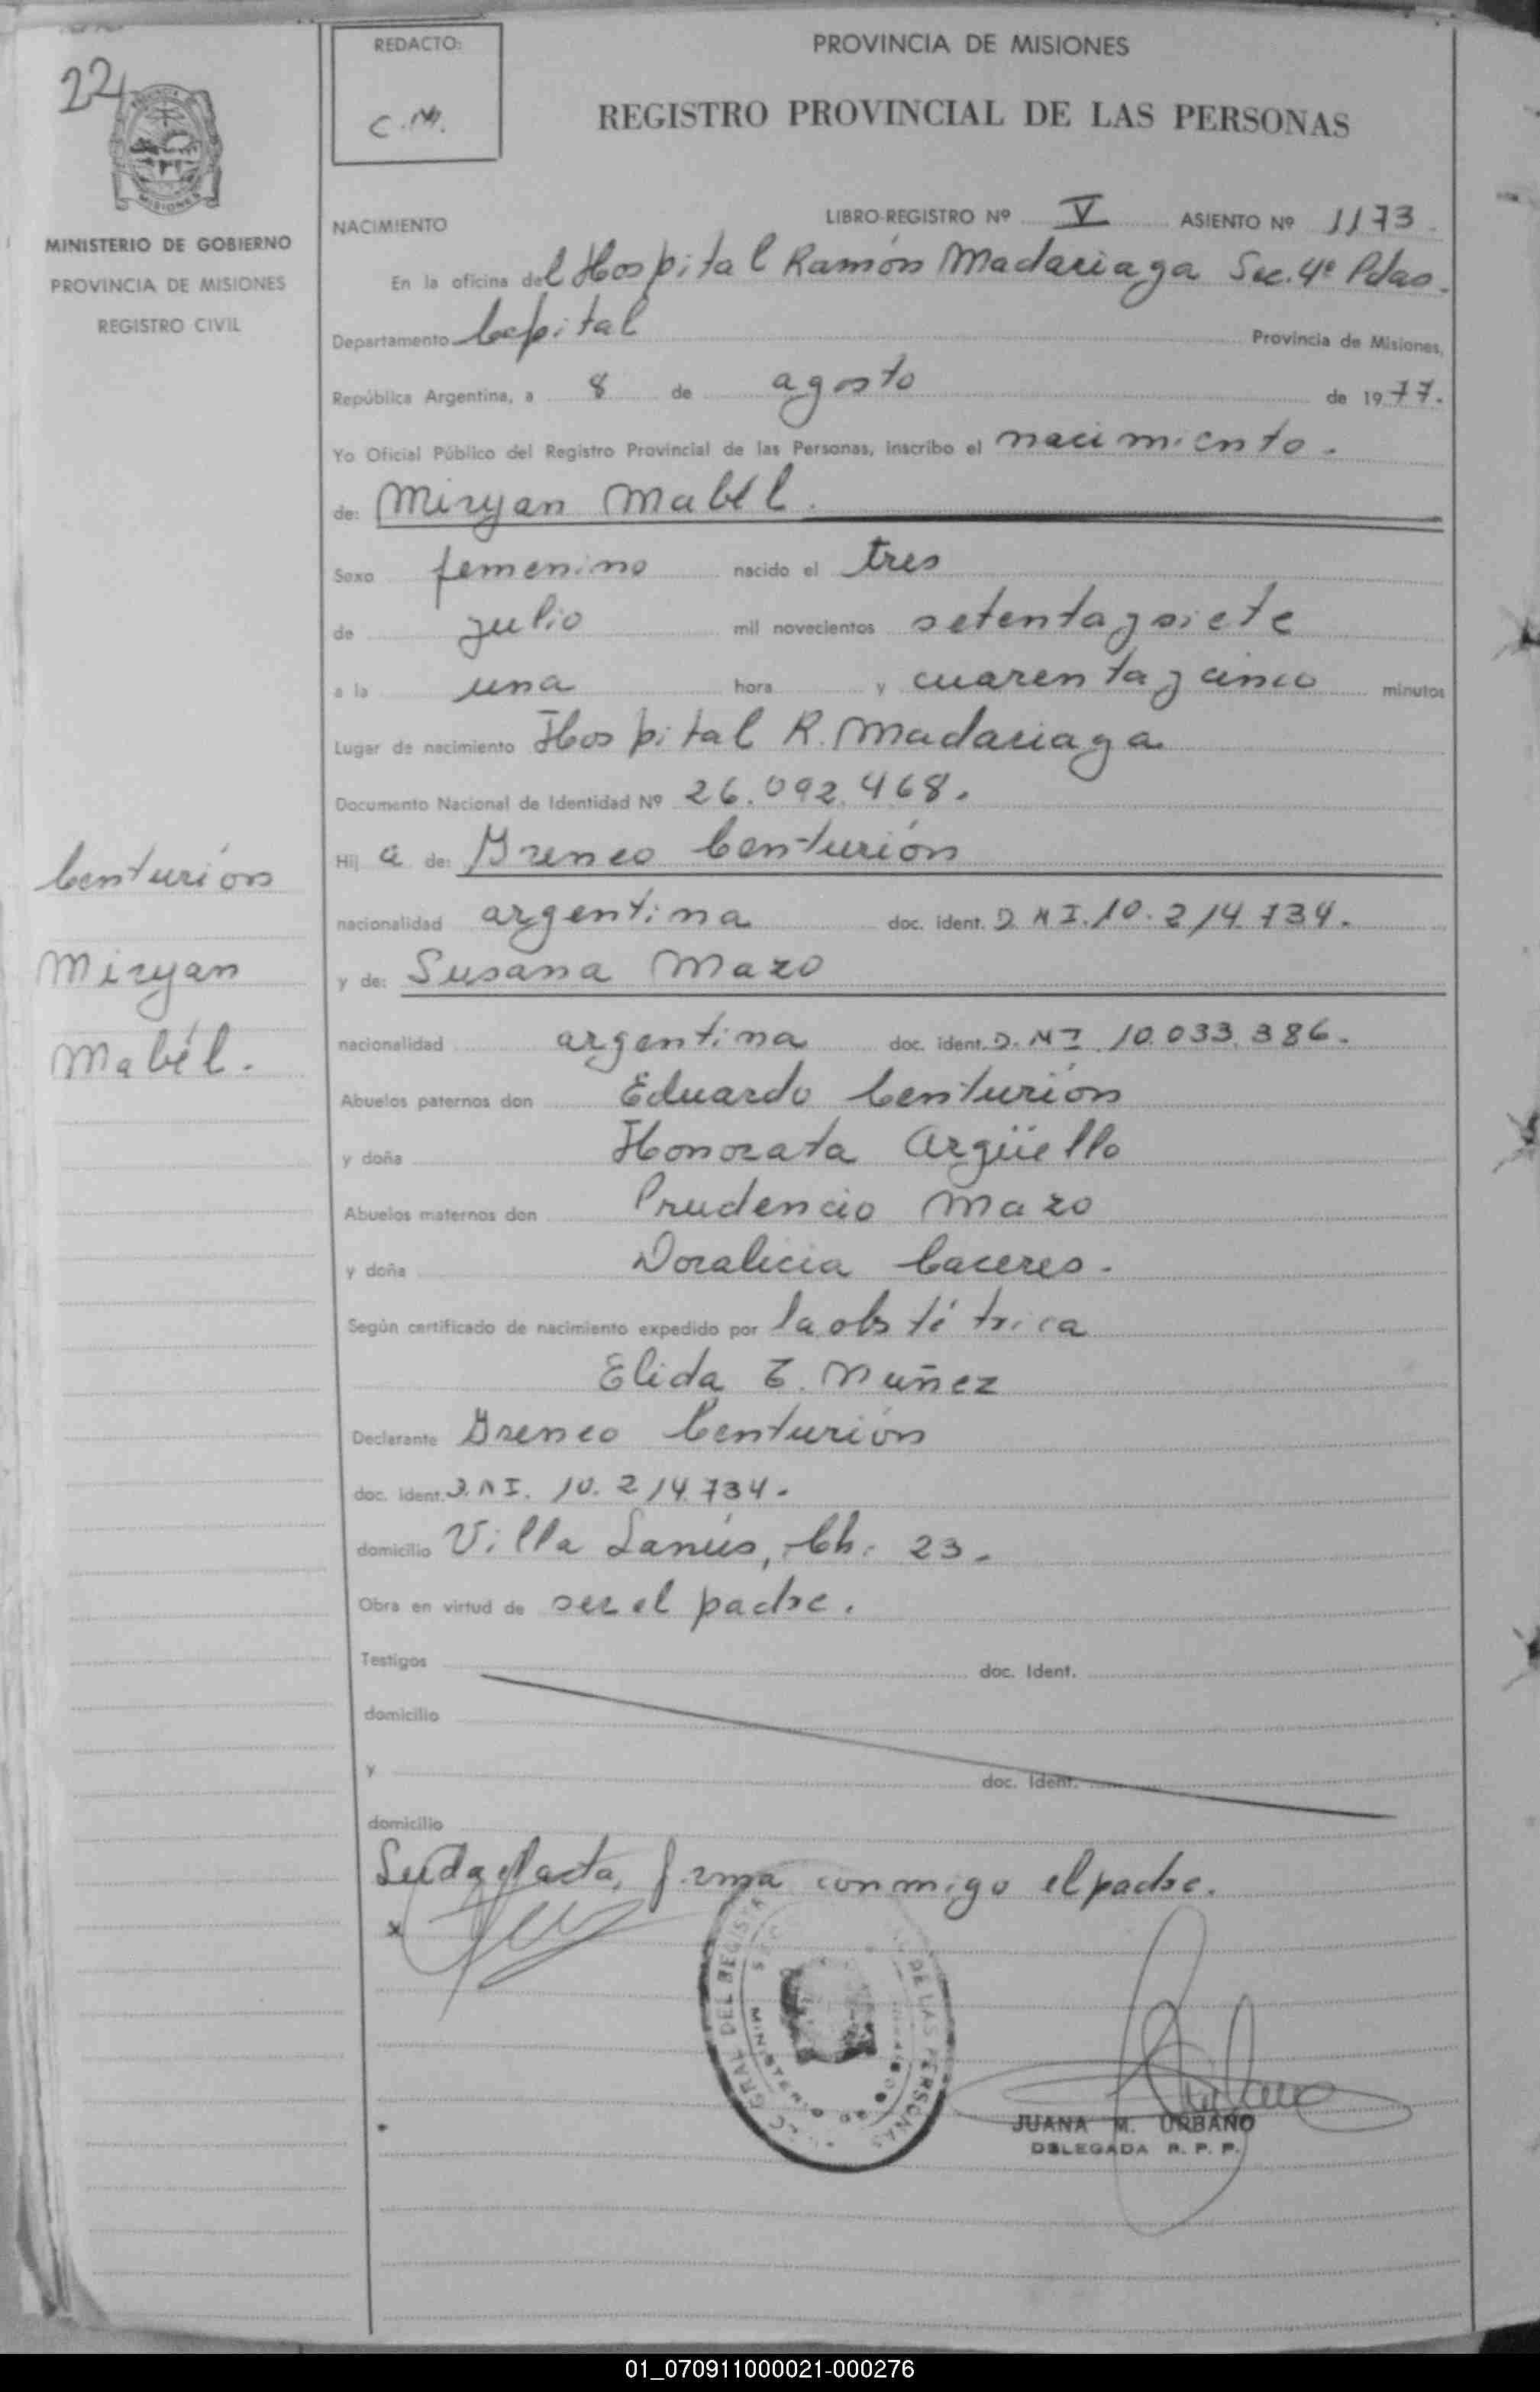 22
MINISTERIO DE GOBIERNO
PROVINCIA DE MISIONES
REGISTRO CIVIL
Centurión
Miryan
Mabél.
REDACTO:
C.M.
PROVINCIA DE MISIONES
REGISTRO PROVINCIAL DE LAS PERSONAS
NACIMIENTO
LIBRO-REGISTRO Nº V ASIENTO Nº 1173.
En la oficina del Hospital Ramón Madariaga Sec. 4º Pdas.
Departamento Capital Provincia de Misiones,
República Argentina, a 8 de agosto de 1977.
Yo Oficial Público del Registro Provincial de las Personas, inscribo el nacimiento.
de: Miryan Mabél.
Sexo femenino nacido el tres
de julio mil novecientos setenta y siete
a la una hora y cuarenta y cinco minutos
Lugar de nacimiento Hospital R. Madariaga
Documento Nacional de Identidad Nº 26.092.468.
Hij a de: Ireneo Centurión
nacionalidad argentina doc. ident. D.N.I. 10.214.734.
y de: Susana Mazo
nacionalidad argentina doc. ident. D.N.I. 10.033.386.
Abuelos paternos don Eduardo Centurión
y doña Honorata Argüello
Abuelos maternos don Prudencio Mazo
y doña Doralicia Caceres.
Según certificado de nacimiento expedido por la obstétrica
Elida E. Muñez
Declarante Ireneo Centurión
doc. ident. D.N.I. 10.214.734.
domicilio Villa Lanús, Ch. 23.
Obra en virtud de ser el padre.
Testigos doc. Ident.
domicilio
y doc. Ident.
domicilio
Leida el acta, firma conmigo el padre.
x
JUANA M. URBANO
DELEGADA R. P. P.
01_070911000021-000276